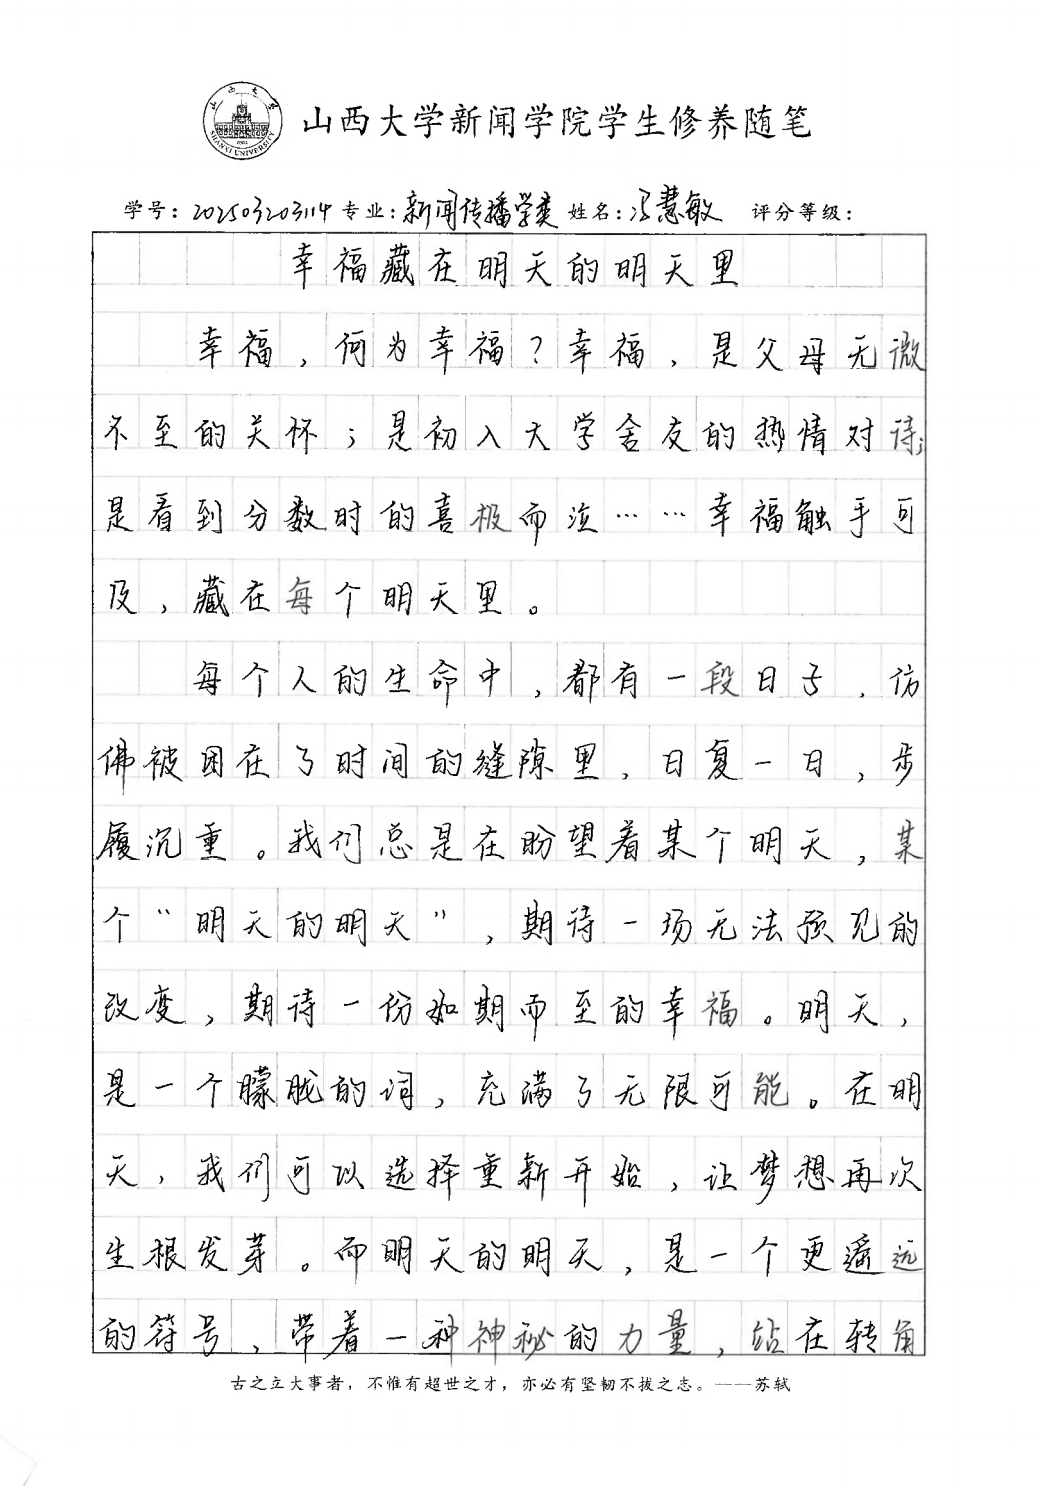 山西大学
SHANXI UNIVERSITY
1902
山西大学新闻学院学生修养随笔
学号：202503203114 专业：新闻传播学类 姓名：冯慧敏 评分等级：
幸福藏在明天的明天里
幸福，何为幸福？幸福，是父母无微
不至的关怀；是初入大学舍友的热情对待；
是看到分数时的喜极而泣……幸福触手可
及，藏在每个明天里。
每个人的生命中，都有一段日子，仿
佛被困在了时间的缝隙里，日复一日，步
履沉重。我们总是在盼望着某个明天，某
个“明天的明天”，期待一场无法预见的
改变，期待一份如期而至的幸福。明天，
是一个朦胧的词，充满了无限可能。在明
天，我们可以选择重新开始，让梦想再次
生根发芽。而明天的明天，是一个更遥远
的符号，带着一种神秘的力量，站在转角
古之立大事者，不惟有超世之才，亦必有坚韧不拔之志。——苏轼